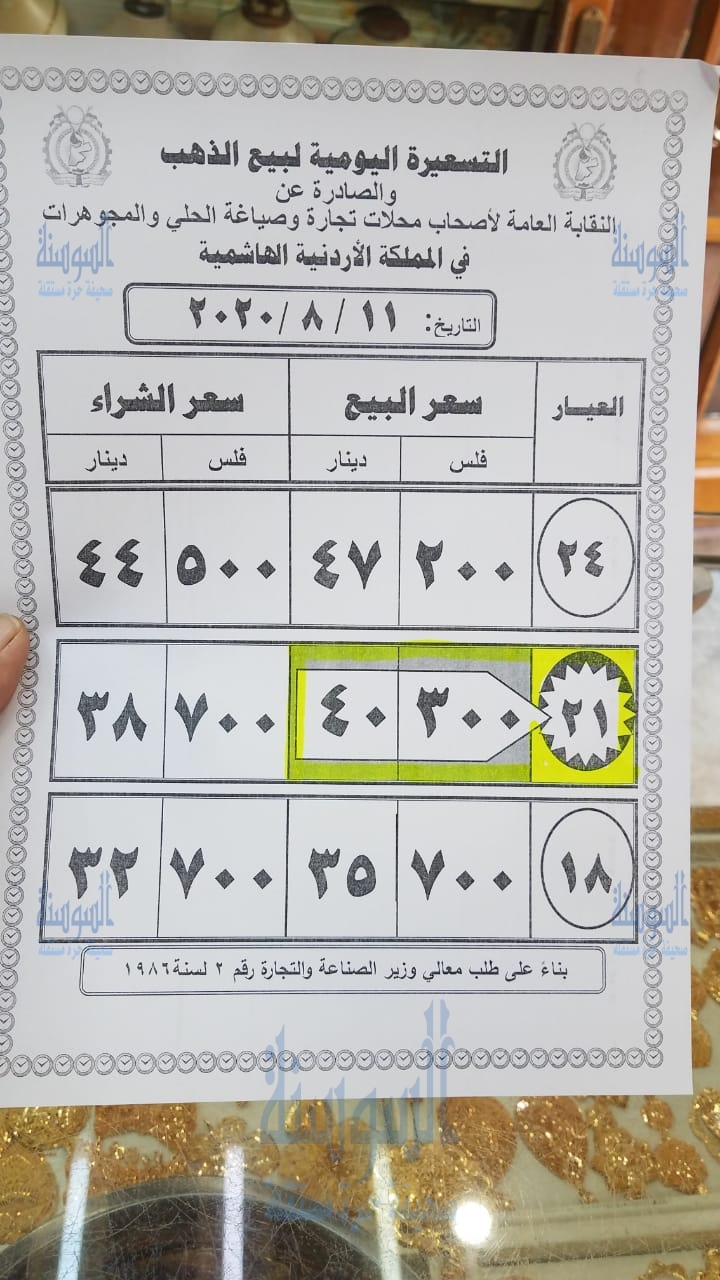 التسعيرة اليومية لبيع الذهب
والصادرة عن
النقابة العامة لأصحاب محلات تجارة وصياغة الحلي والمجوهرات
في المملكة الأردنية الهاشمية
السوسنة
صحيفة حرة مستقلة
السوسنة
صحيفة حرة مستقلة
التاريخ: ١١ / ٨ / ٢٠٢٠
العيار سعر البيع سعر الشراء
فلس دينار فلس دينار
٢٤ ٢٠٠ ٤٧ ٥٠٠ ٤٤
٢١ ٣٠٠ ٤٠ ٧٠٠ ٣٨
١٨ ٧٠٠ ٣٥ ٧٠٠ ٣٢
السوسنة
صحيفة حرة مستقلة
السوسنة
صحيفة حرة مستقلة
بناءً على طلب معالي وزير الصناعة والتجارة رقم ٢ لسنة ١٩٨٦
السوسنة
صحيفة حرة مستقلة